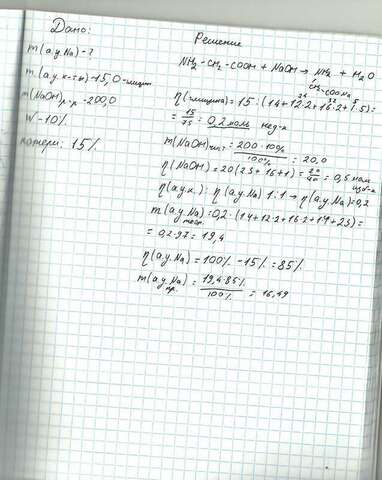 Дано:
m(а.у.Na)-?
m(а.у.к-ты)-15,0-глицин
m(NaOH)р-р-200,0
W-10%
потери: 15%
Решение
NH₂-CH₂-COOH + NaOH → NH₂ + H₂O
CH₂-COONa
η(глицина)=15:(14+12·2+16·2+1·5)=
= 15/75 = 0,2 моль нед-к
m(NaOH) = 200·10% / 100% = 20,0
η(NaOH)=20(23+16+1)= 20/40 = 0,5 моль
изб-к
η(а.у.к.): η(а.у.Na) 1:1 → η(а.у.Na)=0,2
m(а.у.Na)теор.=0,2·(14+12·2+16·2+1·4+23)=
=0,2·97=19,4
η(а.у.Na)=100%-15%=85%
m(а.у.Na)пр. = 19,4·85% / 100% = 16,49